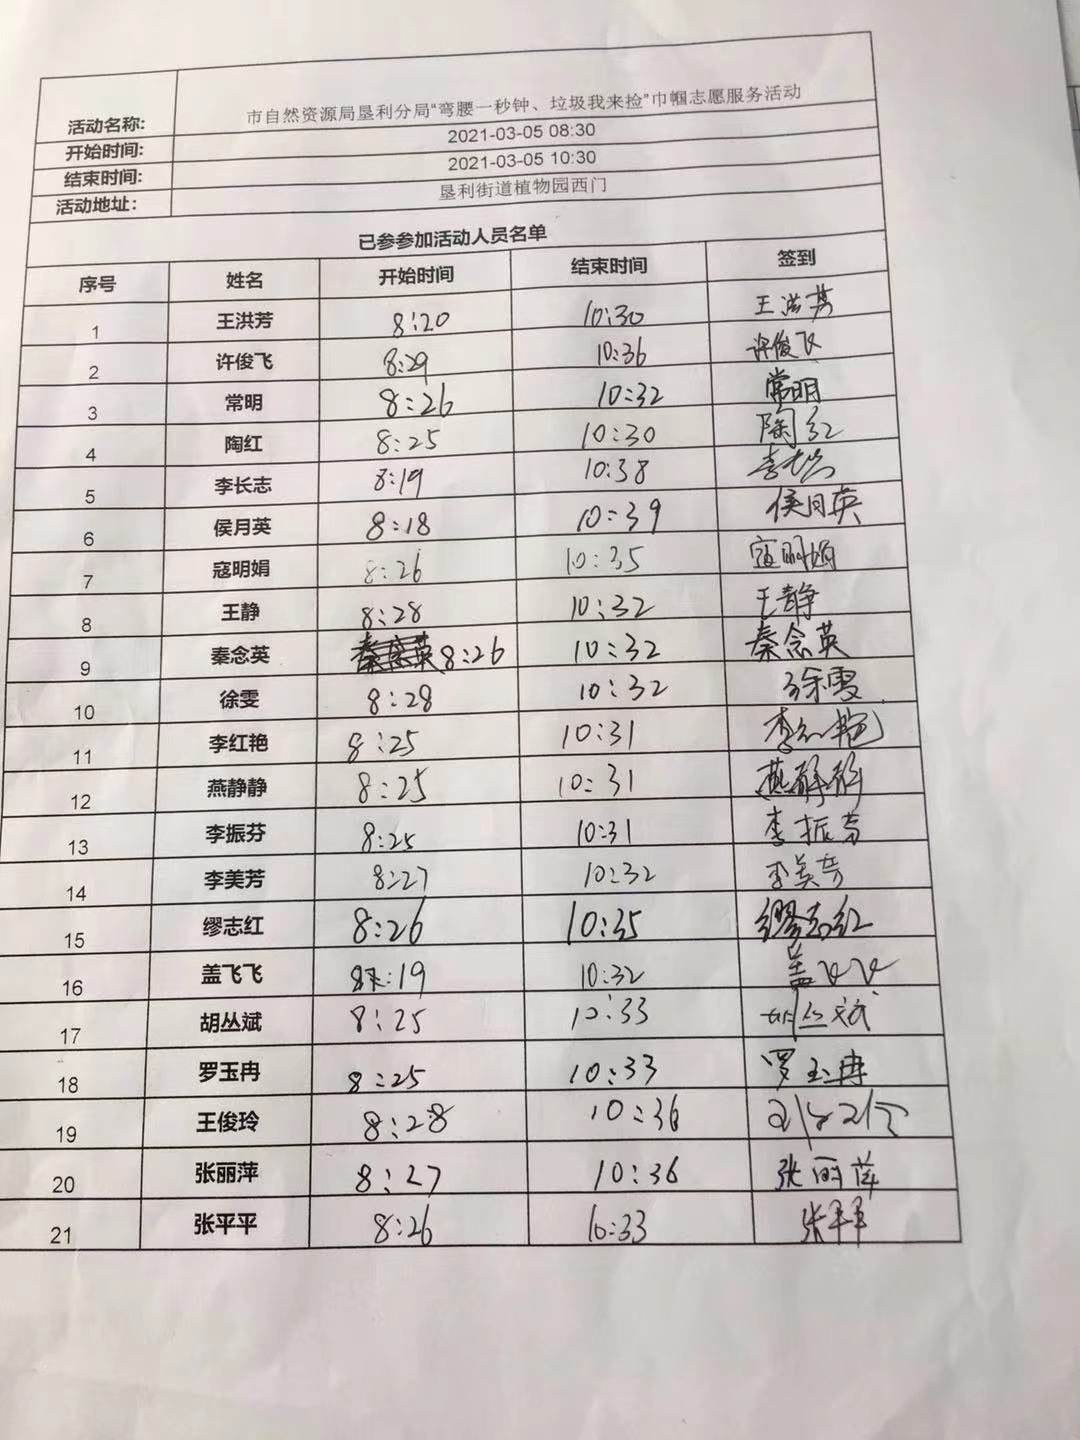 活动名称: 市自然资源局垦利分局“弯腰一秒钟、垃圾我来捡”巾帼志愿服务活动
开始时间: 2021-03-05 08:30
结束时间: 2021-03-05 10:30
活动地址: 垦利街道植物园西门
已参参加活动人员名单
序号 姓名 开始时间 结束时间 签到
1 王洪芳 8:20 10:30 王洪芳
2 许俊飞 8:29 10:36 许俊飞
3 常明 8:26 10:32 常明
4 陶红 8:25 10:30 陶红
5 李长志 8:19 10:38 李长志
6 侯月英 8:18 10:39 侯月英
7 寇明娟 8:26 10:35 寇明娟
8 王静 8:28 10:32 王静
9 秦念英 秦念英 8:26 10:32 秦念英
10 徐雯 8:28 10:32 徐雯
11 李红艳 8:25 10:31 李红艳
12 燕静静 8:25 10:31 燕静静
13 李振芬 8:25 10:31 李振芬
14 李美芳 8:27 10:32 李美芳
15 缪志红 8:26 10:35 缪志红
16 盖飞飞 8:19 10:32 盖飞飞
17 胡丛斌 8:25 10:33 胡丛斌
18 罗玉冉 8:25 10:33 罗玉冉
19 王俊玲 8:28 10:36 王俊玲
20 张丽萍 8:27 10:36 张丽萍
21 张平平 8:26 10:33 张平平